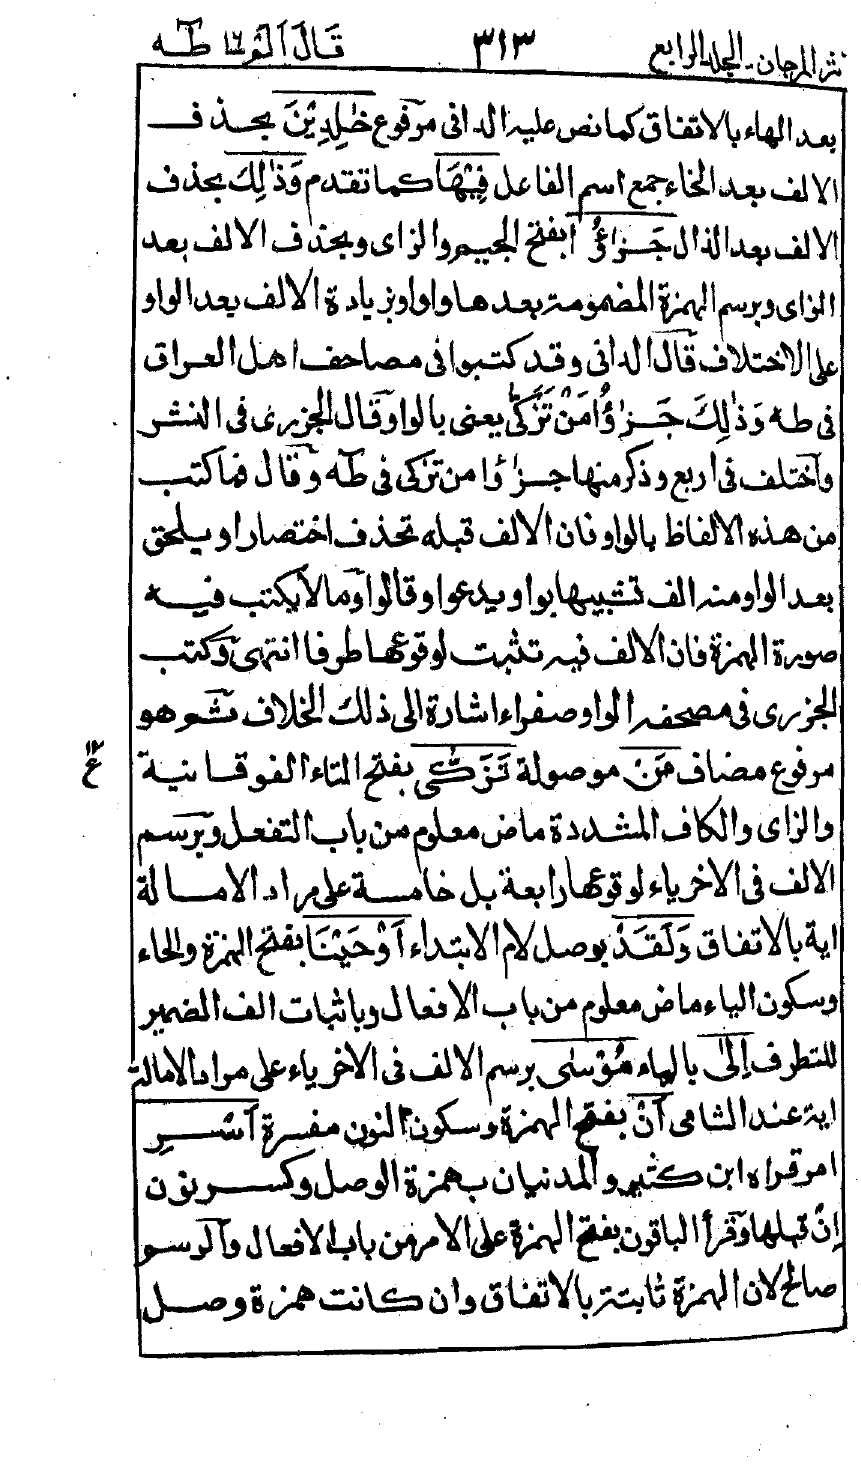 نثر المرجان - الجلد الرابع ٣١٣ قَالَ اَلَمْ ١٦ طٰهٰ
بعد الهاء بالاتفاق كما نص عليه الدانى مرفوع خٰلِدِيْنَ بحذف
الالف بعد الخاء جمع اسم الفاعل فِيْهَا كما تقدم وَذٰلِكَ بحذف
الالف بعد الذال جَزٰٓؤُا بفتح الجيم والزاى وبحذف الالف بعد
الزاى وبرسم الهمزة المضمومة بعدها واوا وبزيادة الالف بعد الواو
على الاختلاف قال الدانى وقد كتبوا فى مصاحف اهل العراق
فى طه وَذٰلِكَ جَزٰؤُا مَنْ تَزَكّٰى يعنى بالواو وقال الجزرى فى النشر
واختلف فى اربع وذكر منها جزٰؤا من تزكى فى طٰه وقال فما كتب
من هذه الالفاظ بالواو فان الالف قبله تحذف اختصارا ويلحق
بعد الواو منه الف تشبيها بواو يدعوا وقالوا وما لا يكتب فيه
صورة الهمزة فان الالف فيه تثبت لوقوعها طرفا انتهى وكتب
الجزرى فى مصحفه الواو صفراء اشارة الى ذلك الخلاف ثم هو
مرفوع مضاف مَنْ موصولة تَزَكّٰى بفتح التاء الفوقانية
١٢ع
والزاى والكاف المشددة ماض معلوم من باب التفعل وبرسم
الالف فى الاخر ياء لوقوعها رابعة بل خامسة على مراد الامالة
اية بالاتفاق وَلَقَدْ بوصل لام الابتداء اَوْحَيْنَا بفتح الهمزة والحاء
وسكون الياء ماض معلوم من باب الافعال وباثبات الف الضمير
للتطرف اِلٰى بالياء مُوْسٰى برسم الالف فى الاخر ياء على مراد الامالة
اية عند الشامى اَنْ بفتح الهمزة وسكون النون مفسرة اَسْرِ
امر قراه ابن كثير والمدنيان بهمزة الوصل وكسر نون
اِنْ قبلها وقرأ الباقون بفتح الهمزة على الامر من باب الافعال والرسم
صالح لان الهمزة ثابتة بالاتفاق وان كانت همزة وصل